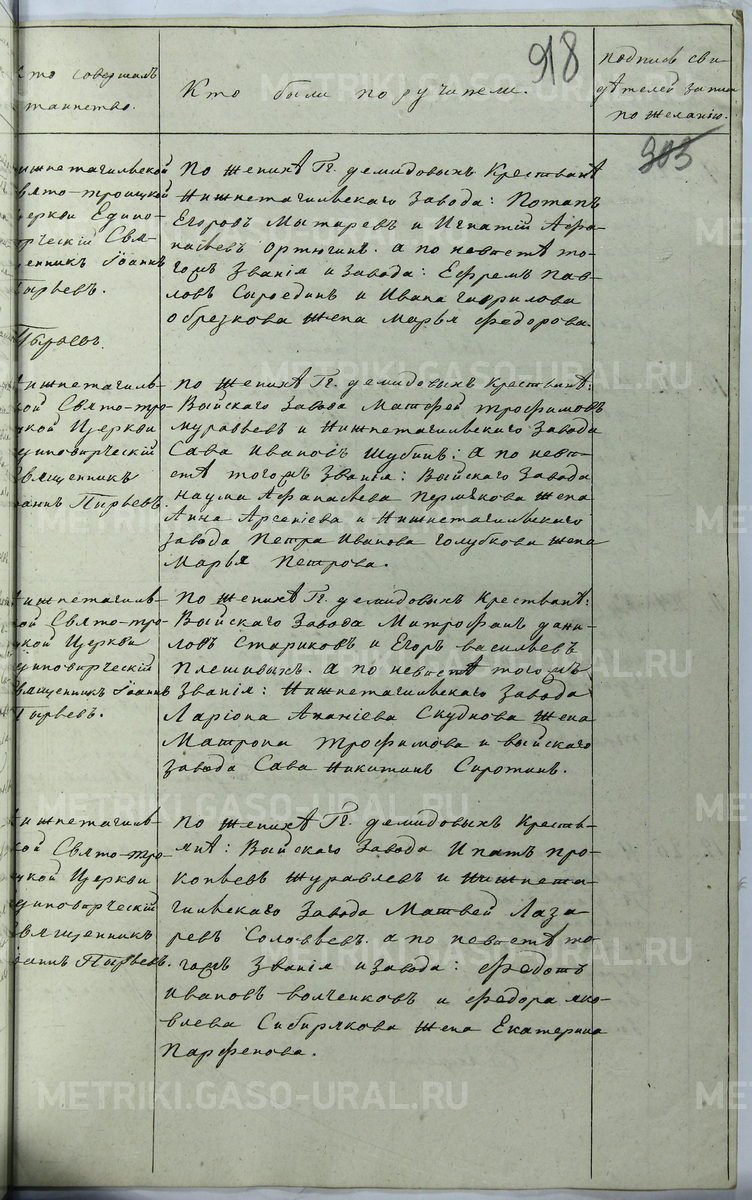 918
Кто совершалъ
таинство.
Кто были поручители.
подпись сви-
дѣтелей записи
по желанію.
303
Нижнетагильской
Свято-троицкой
Церкви Едино-
вѣрческій Свя-
щенникъ Іоаннъ
Пырьевъ.
По женихѣ Гг. демидовыхъ Крестьянѣ
Нижнетагильскаго Завода: Потапъ
Егоровъ Мытаревъ и Игнатій Афа-
насьевъ Ортюгинъ. а по невѣстѣ то-
гожъ Званія и завода: Ефремъ Пав-
ловъ Сыроединъ и Ивана гаврилова
обрезкова жена Марья Федорова.
Пырьевъ.
Нижнетагиль-
ской Свято-тро-
ицкой Церкви
Единовѣрческій
Священникъ
Іоаннъ Пырьевъ.
по женихѣ Гг. демидовыхъ Крестьянѣ:
Выйскаго Завода Матфей трофимовъ
муравьевъ и Нижнетагильскаго Завода
Сава Ивановъ Шубинъ: а по невѣ-
стѣ тогожъ Званія: Выйскаго Завода
наума Афанасьева Пермякова жена
Анна Арсеніева и Нижнетагильскаго
завода Петра Иванова голубкова жена
Марья Петрова.
Нижнетагиль-
ской Свято-тро-
ицкой Церкви
Единовѣрческій
Священникъ Іоаннъ
Пырьевъ.
по женихѣ Гг. демидовыхъ Крестьянѣ:
Выйскаго Завода Митрофанъ дани-
ловъ Стариковъ и Егоръ васильевъ
Плешивыхъ. а по невѣстѣ тогожъ
Званія: Нижнетагильскаго Завода
Ларіона Ананіева Скуднова жена
Матрона трофимова и выйскаго
завода Сава Никитинъ Сиротинъ.
Нижнетагиль-
ской Свято-тро-
ицкой Церкви
Единовѣрческій
Священникъ
Іоаннъ Пырьевъ.
по женихѣ Гг. демидовыхъ Кресть-
янѣ: Выйскаго Завода Ипатъ про-
копьевъ журавлевъ и Нижнета-
гильскаго Завода Матвей Лаза-
ревъ Соловьевъ. а по невѣстѣ то-
гожъ Званія и завода: Федотъ
ивановъ волченковъ и федора яко-
влева Сибирякова жена Екатерина
Парфенова.
METRIKI.GASO-URAL.RU